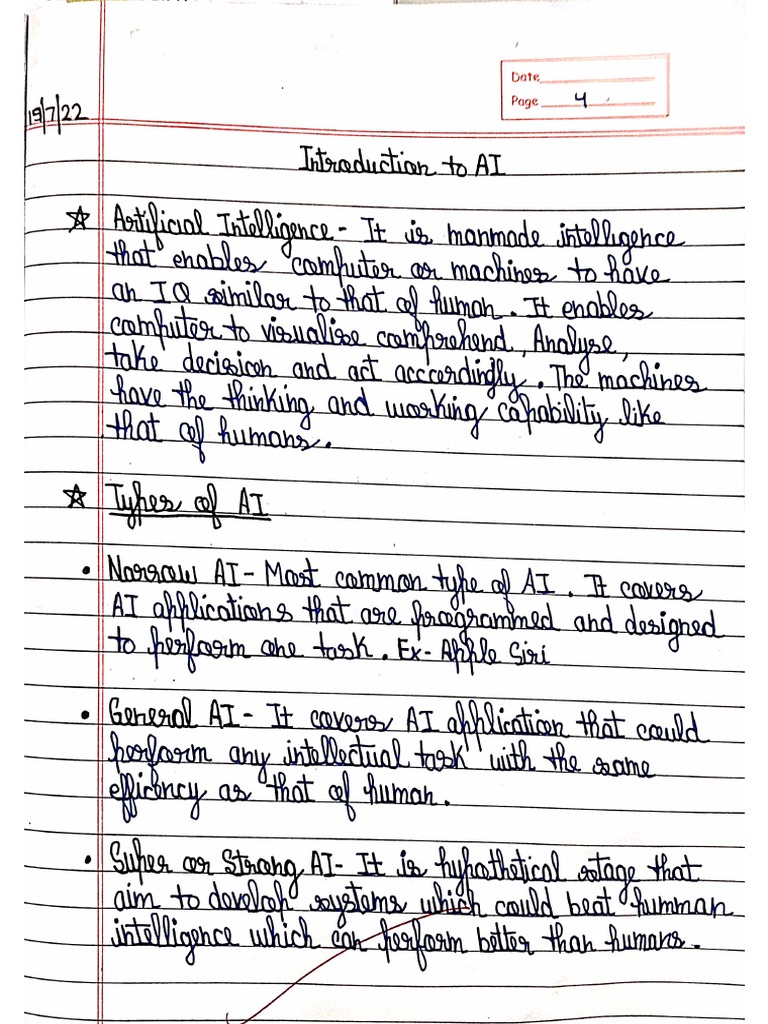 Date
Page 4
19/7/22
Introduction to AI
☆ Artificial Intelligence - It is manmade intelligence
that enables computer or machines to have
an IQ similar to that of human. It enables
computer to visualise comprehend, Analyse,
take decision and act accordingly. The machines
have the thinking and working capability like
that of humans.
☆ Types of AI
• Narrow AI - Most common type of AI. It covers
AI applications that are programmed and designed
to perform one task. Ex- Apple Siri
• General AI - It covers AI application that could
perform any intellectual task with the same
efficency as that of human.
• Super or Strong AI - It is hypothetical stage that
aim to develop systems which could beat humman
intelligence which can perform better than humans.